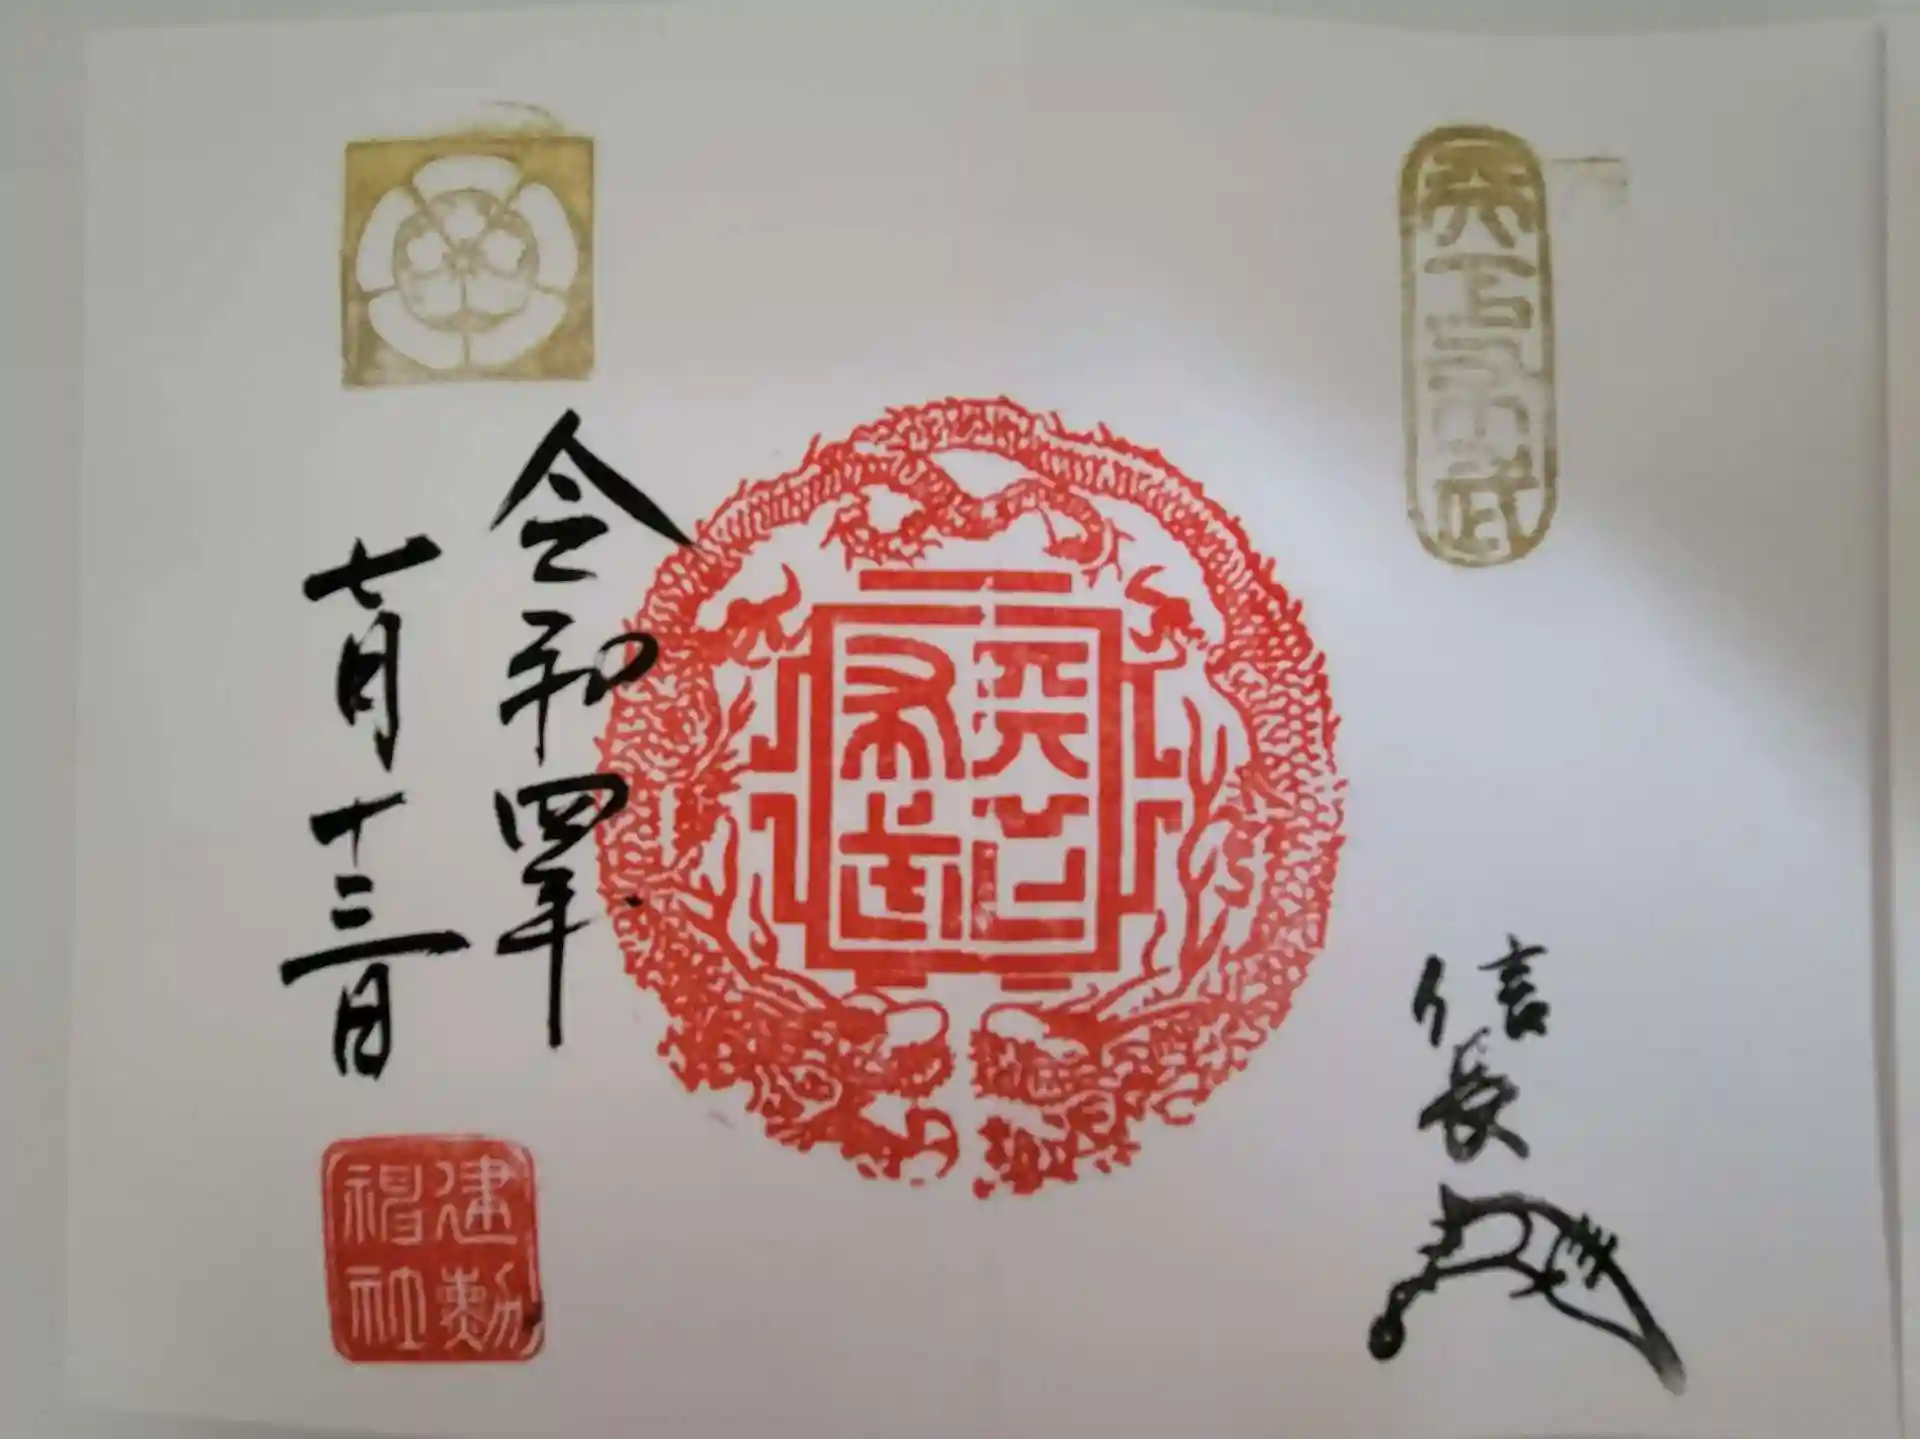 天下布武
信長
天下布武
令和四年
七月十三日
建勲神社